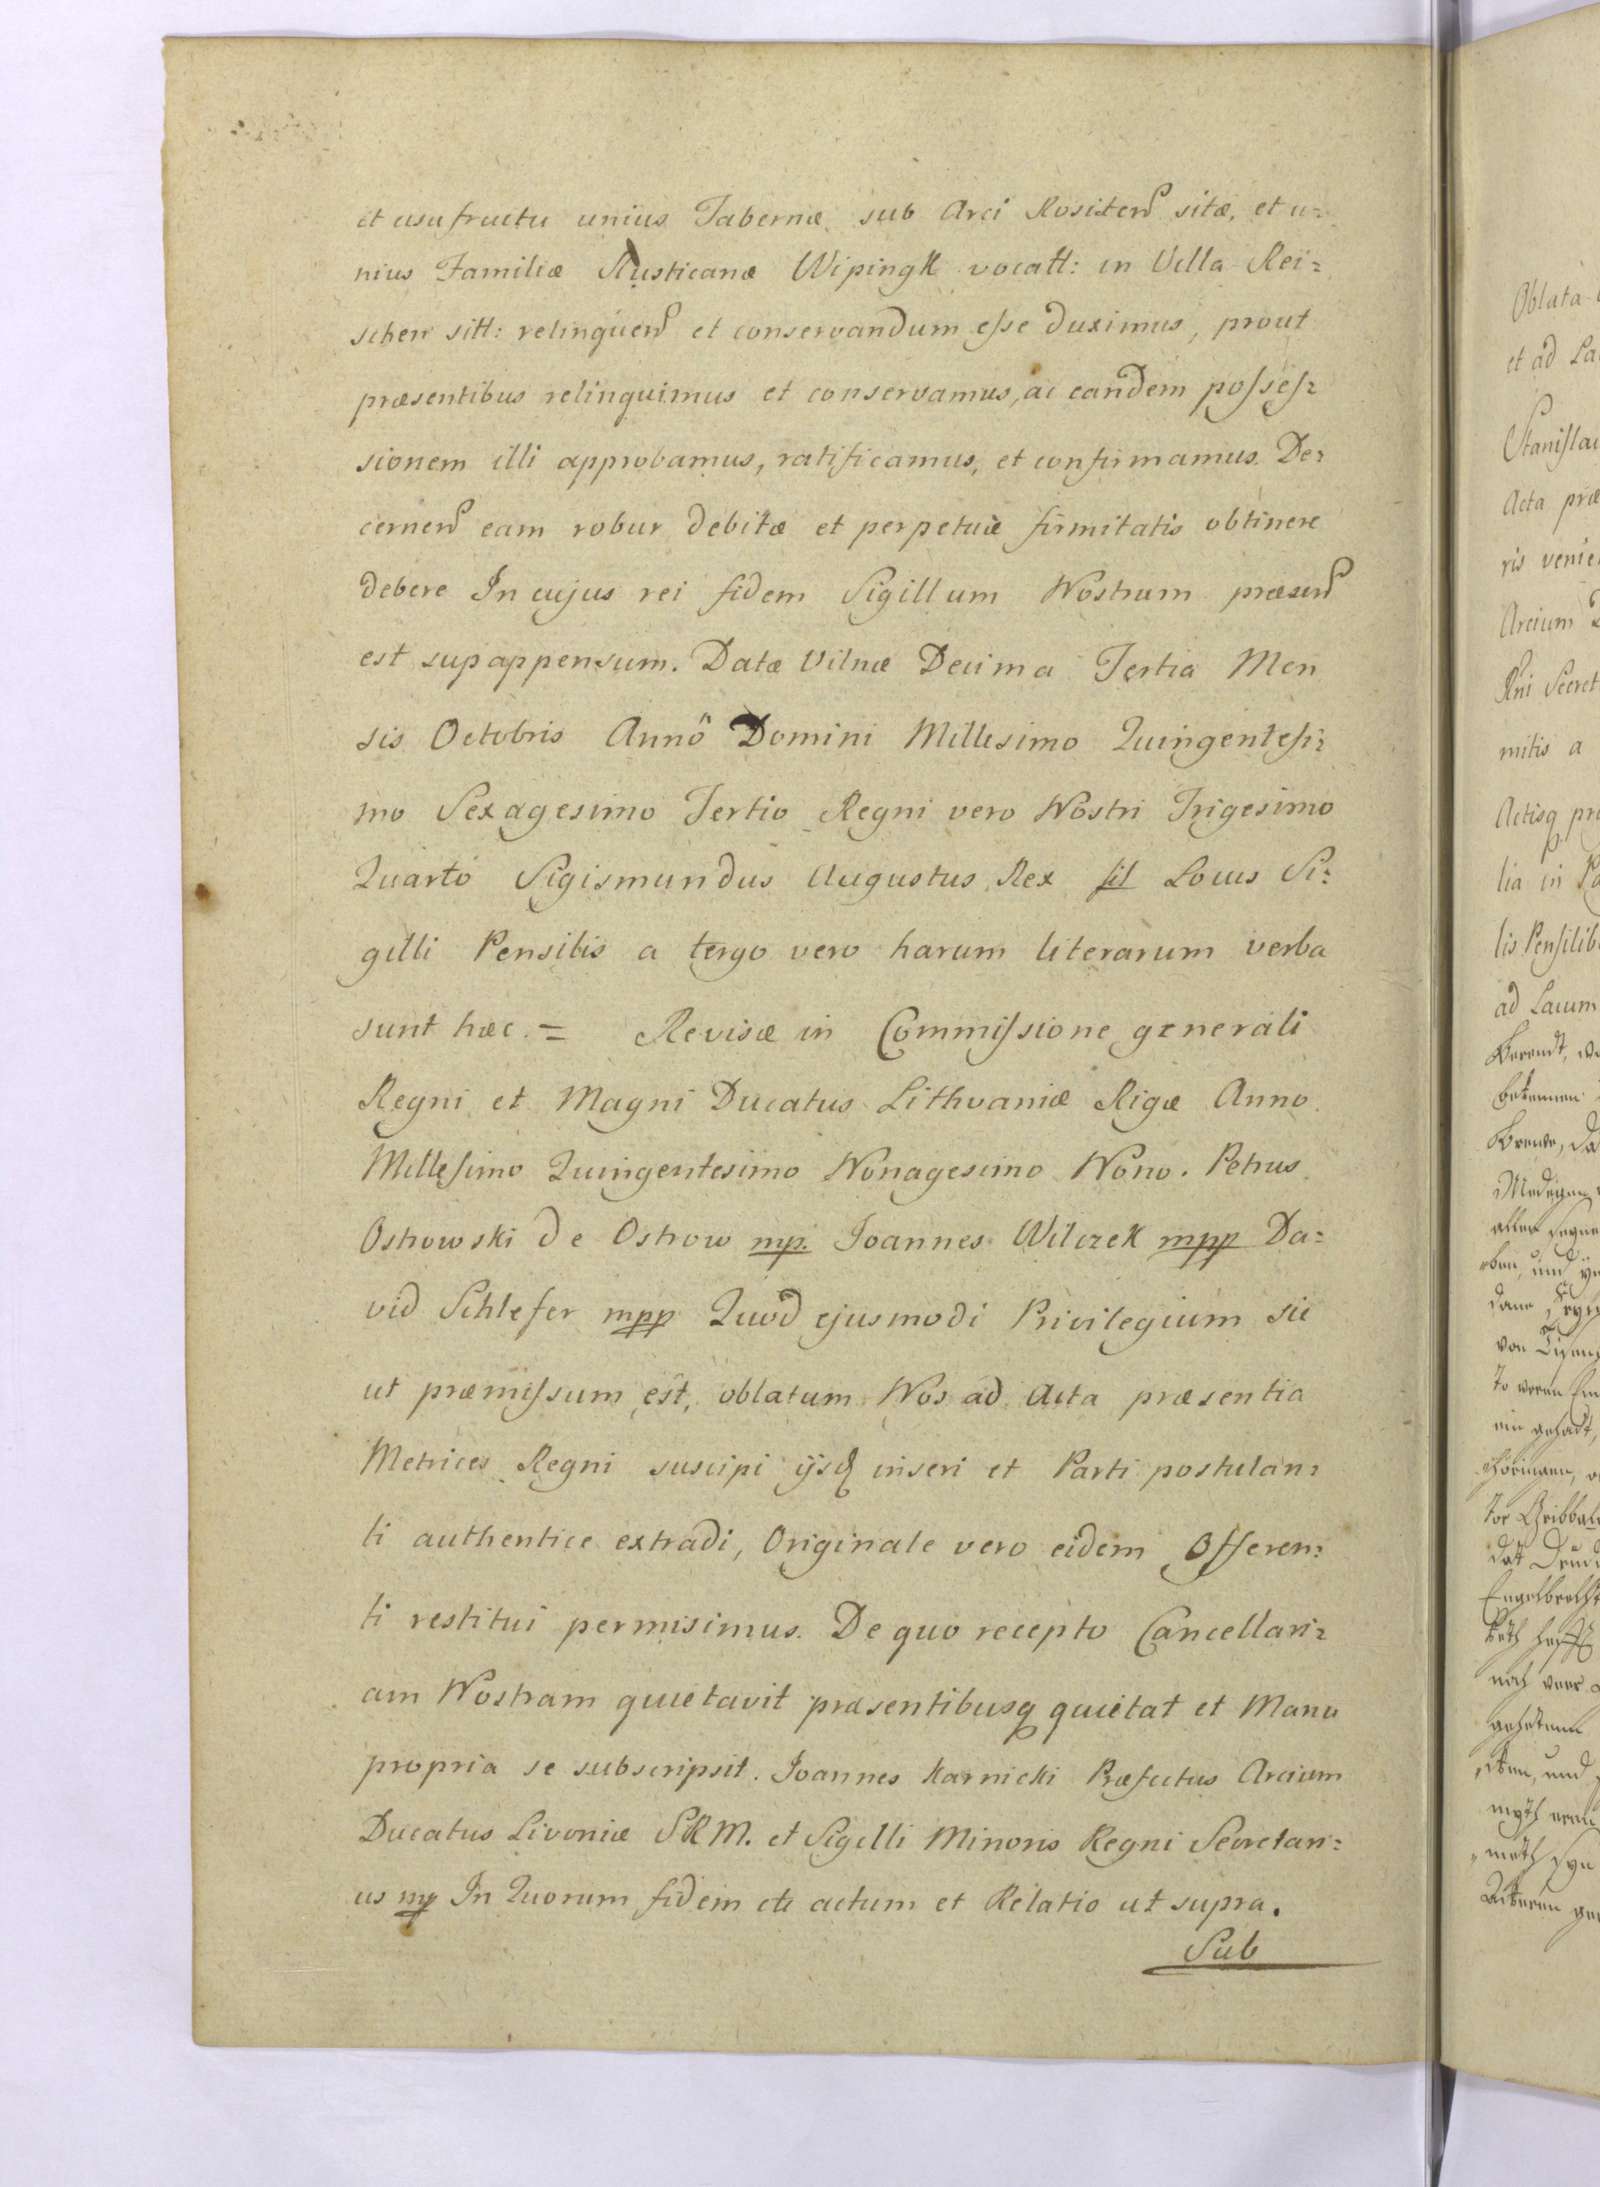 et usufructu unius Tabernæ sub Arci Rositen̄ sitæ, et u=
nius Familiæ Rusticanæ Wipingk vocatt: in Villa Rei=
schen sitt: relinquen̄ et conservandum esse duximus, prout
præsentibus relinquimus et conservamus, ac eandem posses=
sionem illi approbamus, ratificamus, et confirmamus. De=
cernen̄ eam robur debitæ et perpetuæ firmitatis obtinere
debere In cujus rei fidem Sigillum Nostrum præsen̄
est supappensum. Datæ Vilnæ Decima Tertia Men
sis Octobris Anno Domini Millesimo Quingentesi=
mo Sexagesimo Tertio Regni vero Nostri Trigesimo
Quarto Sigismundus Augustus Rex Locus Si=
gilli Pensilis a tergo vero harum literarum verba
sunt hæc. = Revisæ in Commissione generali
Regni et Magni Ducatus Lithvaniæ Rigæ Anno
Millesimo Quingentesimo Nonagesimo Nono. Petrus
Ostrowski de Ostrow mp. Joannes Wilczek mpp Da=
vid Schlefer mpp Quod ejusmodi Privilegium sic
ut præmissum est, oblatum Nos ad Acta præsentia
Metrices Regni suscipi ijsq inseri et Parti postulan=
ti authentice extradi, Originale vero eidem Offeren=
ti restitui permisimus. De quo recepto Cancellari=
am Nostram quietavit præsentibusq quietat et Manu
propria se subscripsit. Joannes Karnicki Præfectus Arcium
Ducatus Livoniæ SRM. et Sigilli Minoris Regni Secretari=
us mp In Quorum fidem etc actum et Relatio ut supra.
Sub
Oblata
et ad La
Stanislau
Acta præ
ris venie
Arcium D
Rni Secret
mitis a
Actisq pr
lia in Pa
lis Pensilib
ad Lacum